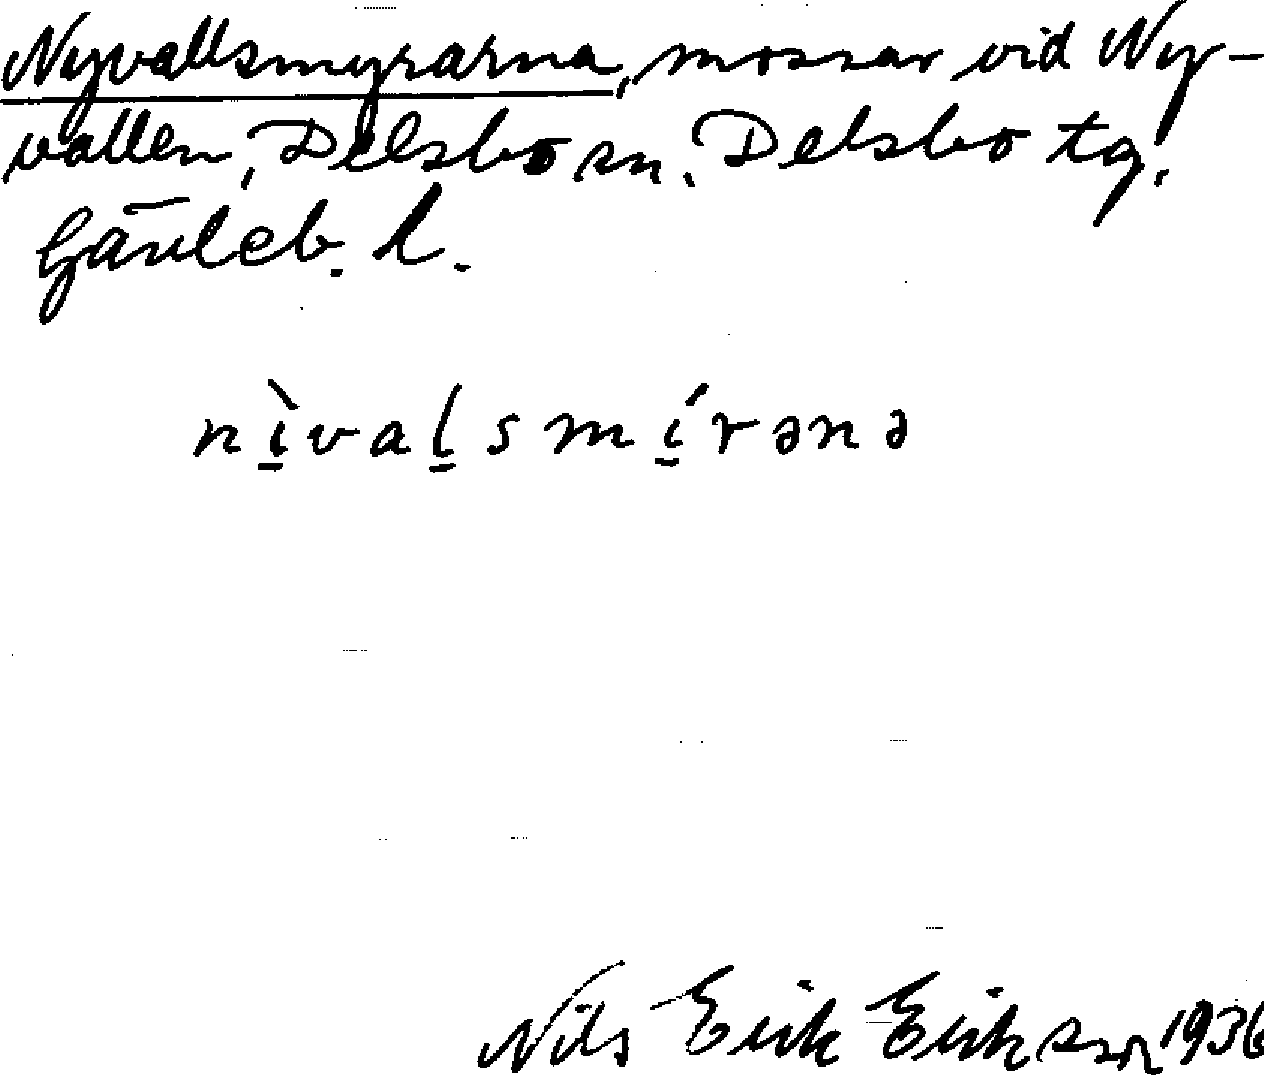 Nyvallsmyrarna, mossar vid Ny-
vallen, Delsbo sn, Delsbo tg,
Gävleb. l.
nì̱vaḻsmí̱rənə
Nils Erik Eriksson 1936